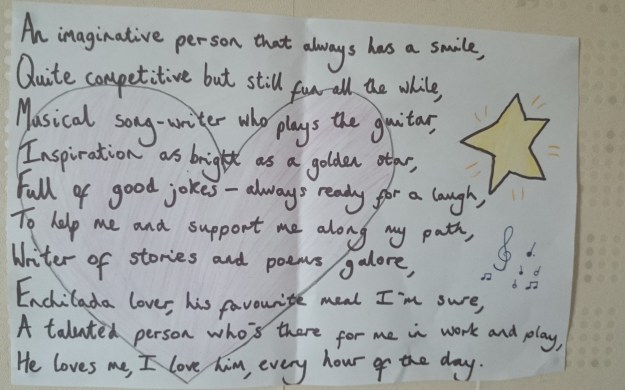 An imaginative person that always has a smile,
Quite competitive but still fun all the while,
Musical song-writer who plays the guitar,
Inspiration as bright as a golden star,
Full of good jokes - always ready for a laugh,
To help me and support me along my path,
Writer of stories and poems galore,
Enchilada lover, his favourite meal I'm sure,
A talented person who's there for me in work and play,
He loves me, I love him, every hour of the day.